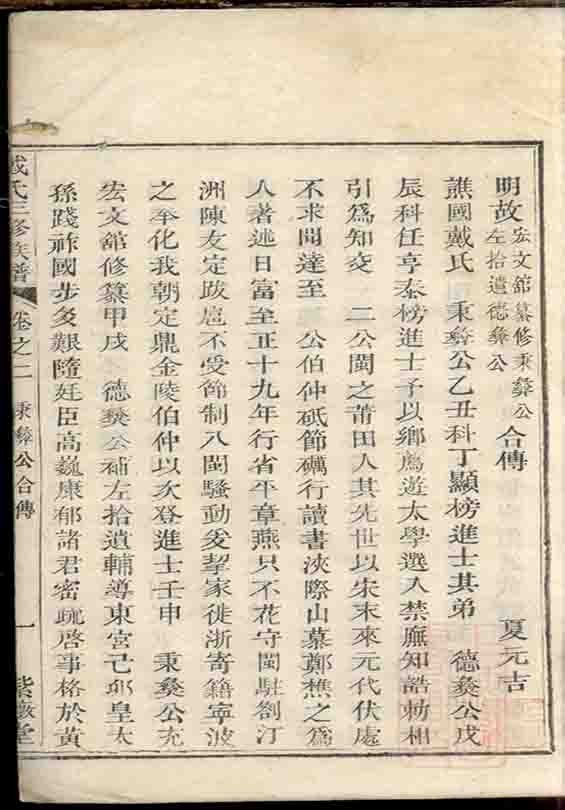 明故宏文舘纂修秉彝公左拾遺德彝公合傳　夏元吉
譙國戴氏　秉彝公乙丑科丁顯榜進士其弟　德彝公戊
辰科任亨泰榜進士予以鄉薦遊太學選入禁廡知誥勅相
引爲知交　二公閩之莆田人其先世以宋末來元代伏處
不求聞達至　公伯仲砥節礪行讀書浹際山慕鄭樵之爲
人著述日富至正十九年行省平章燕只不花守閩駐劄汀
洲陳友定跋扈不受節制八閩騷動爰挈家徙浙寄籍寧波
之奉化我朝定鼎金陵伯仲以次登進士壬申　秉彝公充
宏文舘修纂甲戌　德彝公補左拾遺輔導東宮己卯皇太
孫踐祚國步多艱隨廷臣高巍康郁諸君密疏啓事格於黃
戴氏三修族譜　卷之二　秉彝公合傳　一　紫薇堂